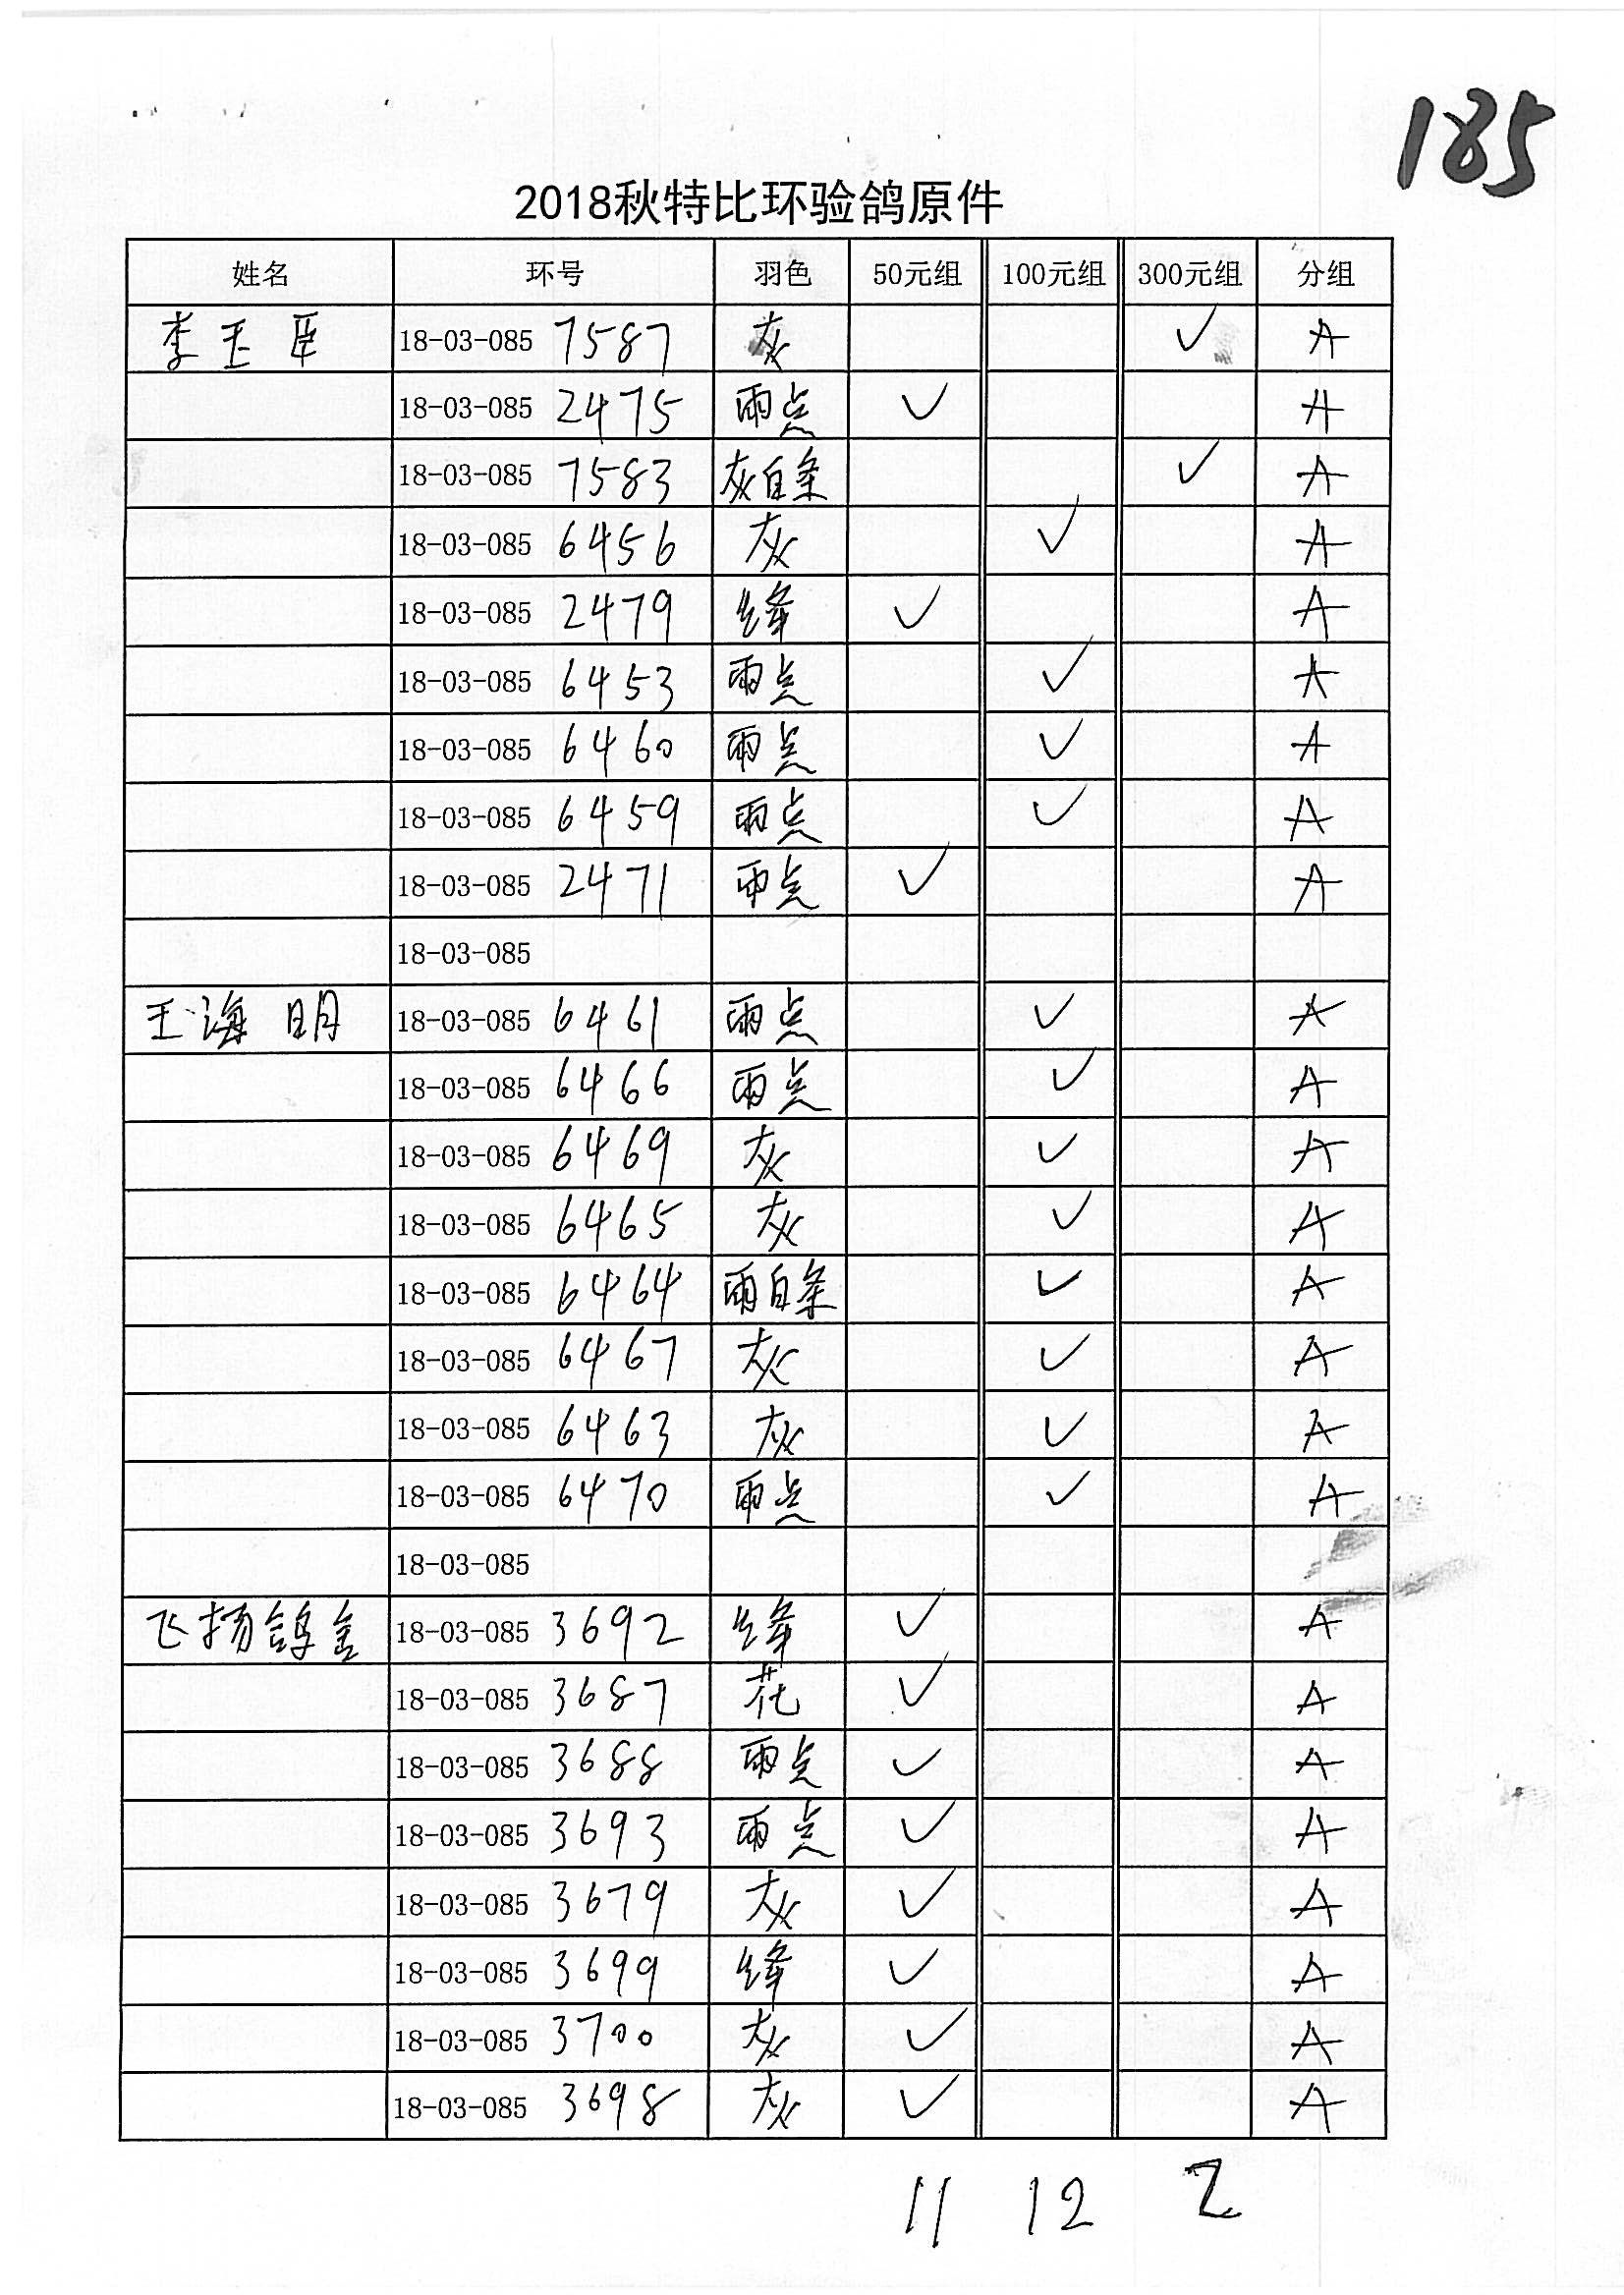 185
2018秋特比环验鸽原件
姓名 环号 羽色 50元组 100元组 300元组 分组
李玉臣 18-03-085 7587 灰 ✓ A
18-03-085 2475 雨点 ✓ A
18-03-085 7583 灰白条 ✓ A
18-03-085 6456 灰 ✓ A
18-03-085 2479 绛 ✓ A
18-03-085 6453 雨点 ✓ A
18-03-085 6460 雨点 ✓ A
18-03-085 6459 雨点 ✓ A
18-03-085 2471 雨点 ✓ A
18-03-085
王海明 18-03-085 6461 雨点 ✓ A
18-03-085 6466 雨点 ✓ A
18-03-085 6469 灰 ✓ A
18-03-085 6465 灰 ✓ A
18-03-085 6464 雨白条 ✓ A
18-03-085 6467 灰 ✓ A
18-03-085 6463 灰 ✓ A
18-03-085 6470 雨点 ✓ A
18-03-085
飞扬鸽舍 18-03-085 3692 绛 ✓ A
18-03-085 3687 花 ✓ A
18-03-085 3688 雨点 ✓ A
18-03-085 3693 雨点 ✓ A
18-03-085 3679 灰 ✓ A
18-03-085 3699 绛 ✓ A
18-03-085 3700 灰 ✓ A
18-03-085 3698 灰 ✓ A
11 12 2